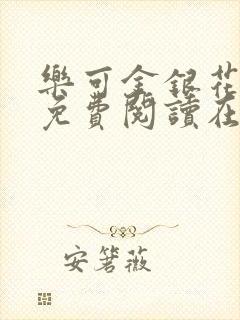 樂可金銀花
免費閱讀在
安箬薇